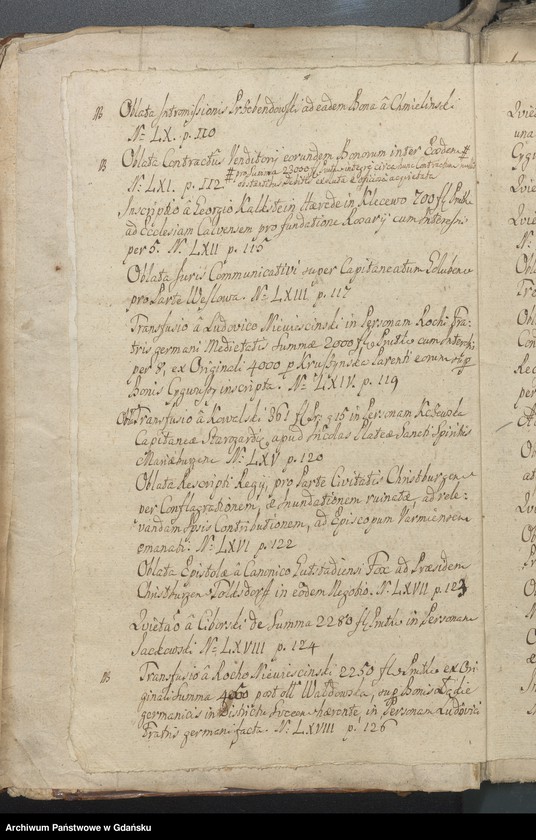 NB Oblata Intromissionis Przebendowski ad eadem Bona â Chmielinski
No LX. p. 110
NB Oblata Contractus Venditorij eorundem Bonorum inter Eosdem #
# pro Summa 23000 fl.
No LXI. p. 112
Inscriptio â Georgio Kalkstein Hærede in Klecewo 700 fl. Prutle
ad Ecclesiam Calvensem pro fundatione Rosarij cum Interessi
per 5. No LXII p. 115
Oblata Juris Communicativi super Capitaneatum Golubense
pro Parte Weslowa. No LXIII p. 117
Transfusio â Ludovico Niewiescinski in Personam Rochi Fra-
tris germani Medietatis Summæ 2000 fl. Prutle cum Interessi
per 8, ex Originali 4000 p Kruszynska Parenti eorum sup
Bonis inscripta. No LXIV. p. 119
Transfusio â Kowalski 361 fl. Pr g 15 in Personam
Capitaneæ Stargardien apud Incolas Plateæ Sancti Spiritus
Mariæburgen No LXV p. 120
Oblata Rescripti Regij, pro Parte Civitatis Christburgen
per Conflagrationem, & Inundationem ruinatæ, ad rele-
vandam Ipsis Contributionem, ad Episcopum Varmiensem
emanati. No LXVI p. 122
Oblata Epistolæ â Canonico Gutstadiensi Fox ad Præsidem
Christburgen Poldsdorff in eodem Negotio. No LXVII p. 123
Quietaõ â Ciborski de Summa 2280 fl. Prutle in Personam
Jackowski No LXVIII p. 124
NB Transfusio â Rocho Niewiescinski 2250 fl. Prutle ex Ori-
ginali Summa 4000 post olt Waldowska, sup Bonis Lędie
germanicis in Districtu Svecen hærente, in Personam Ludovici
Fratris germani facta. No LXVIII p. 126
Archiwum Państwowe w Gdańsku